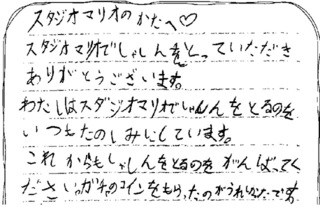 スタジオマリオのかたへ♡
スタジオマリオでしゃしんをとっていただき
ありがとうございます。
わたしはスタジオマリオでしゃしんをとるのを
いつもたのしみにしています。
これからもしゃしんをとるのをがんばってく
ださい。ガチャのコインをもらったのがうれしかったです。